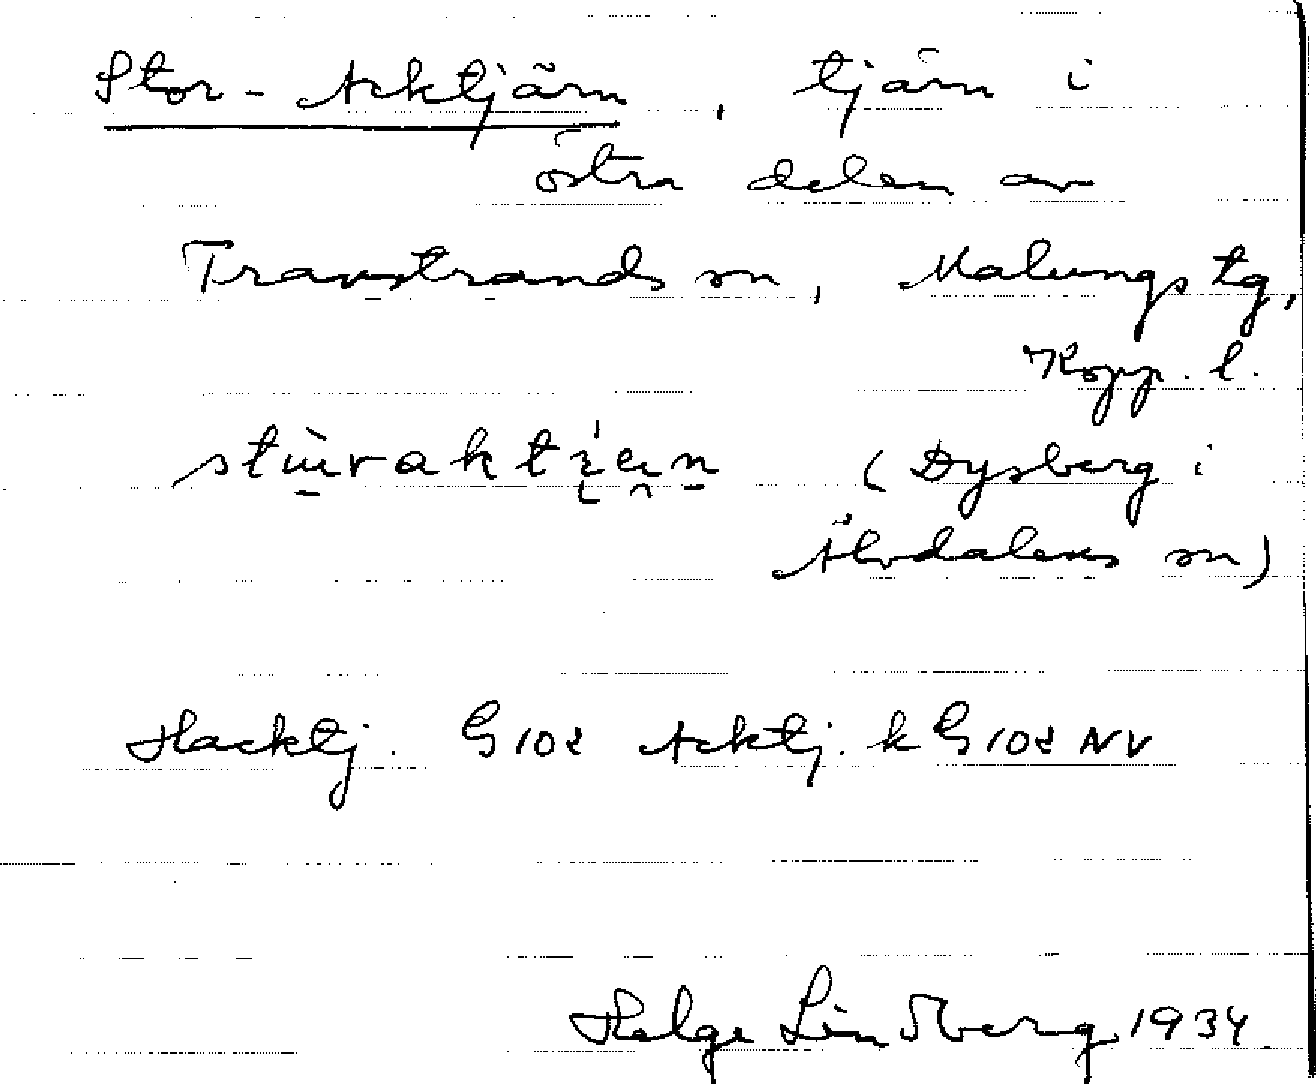 Stor-Acktjärn, tjärn i
östra delen av
Transtrands sn, Malungs tg,
Kopp. l.
(Dysberg i
Älvdalens sn)
Hacktj. G 102 Acktj. k G 102 NV
Helge Lindberg 1934